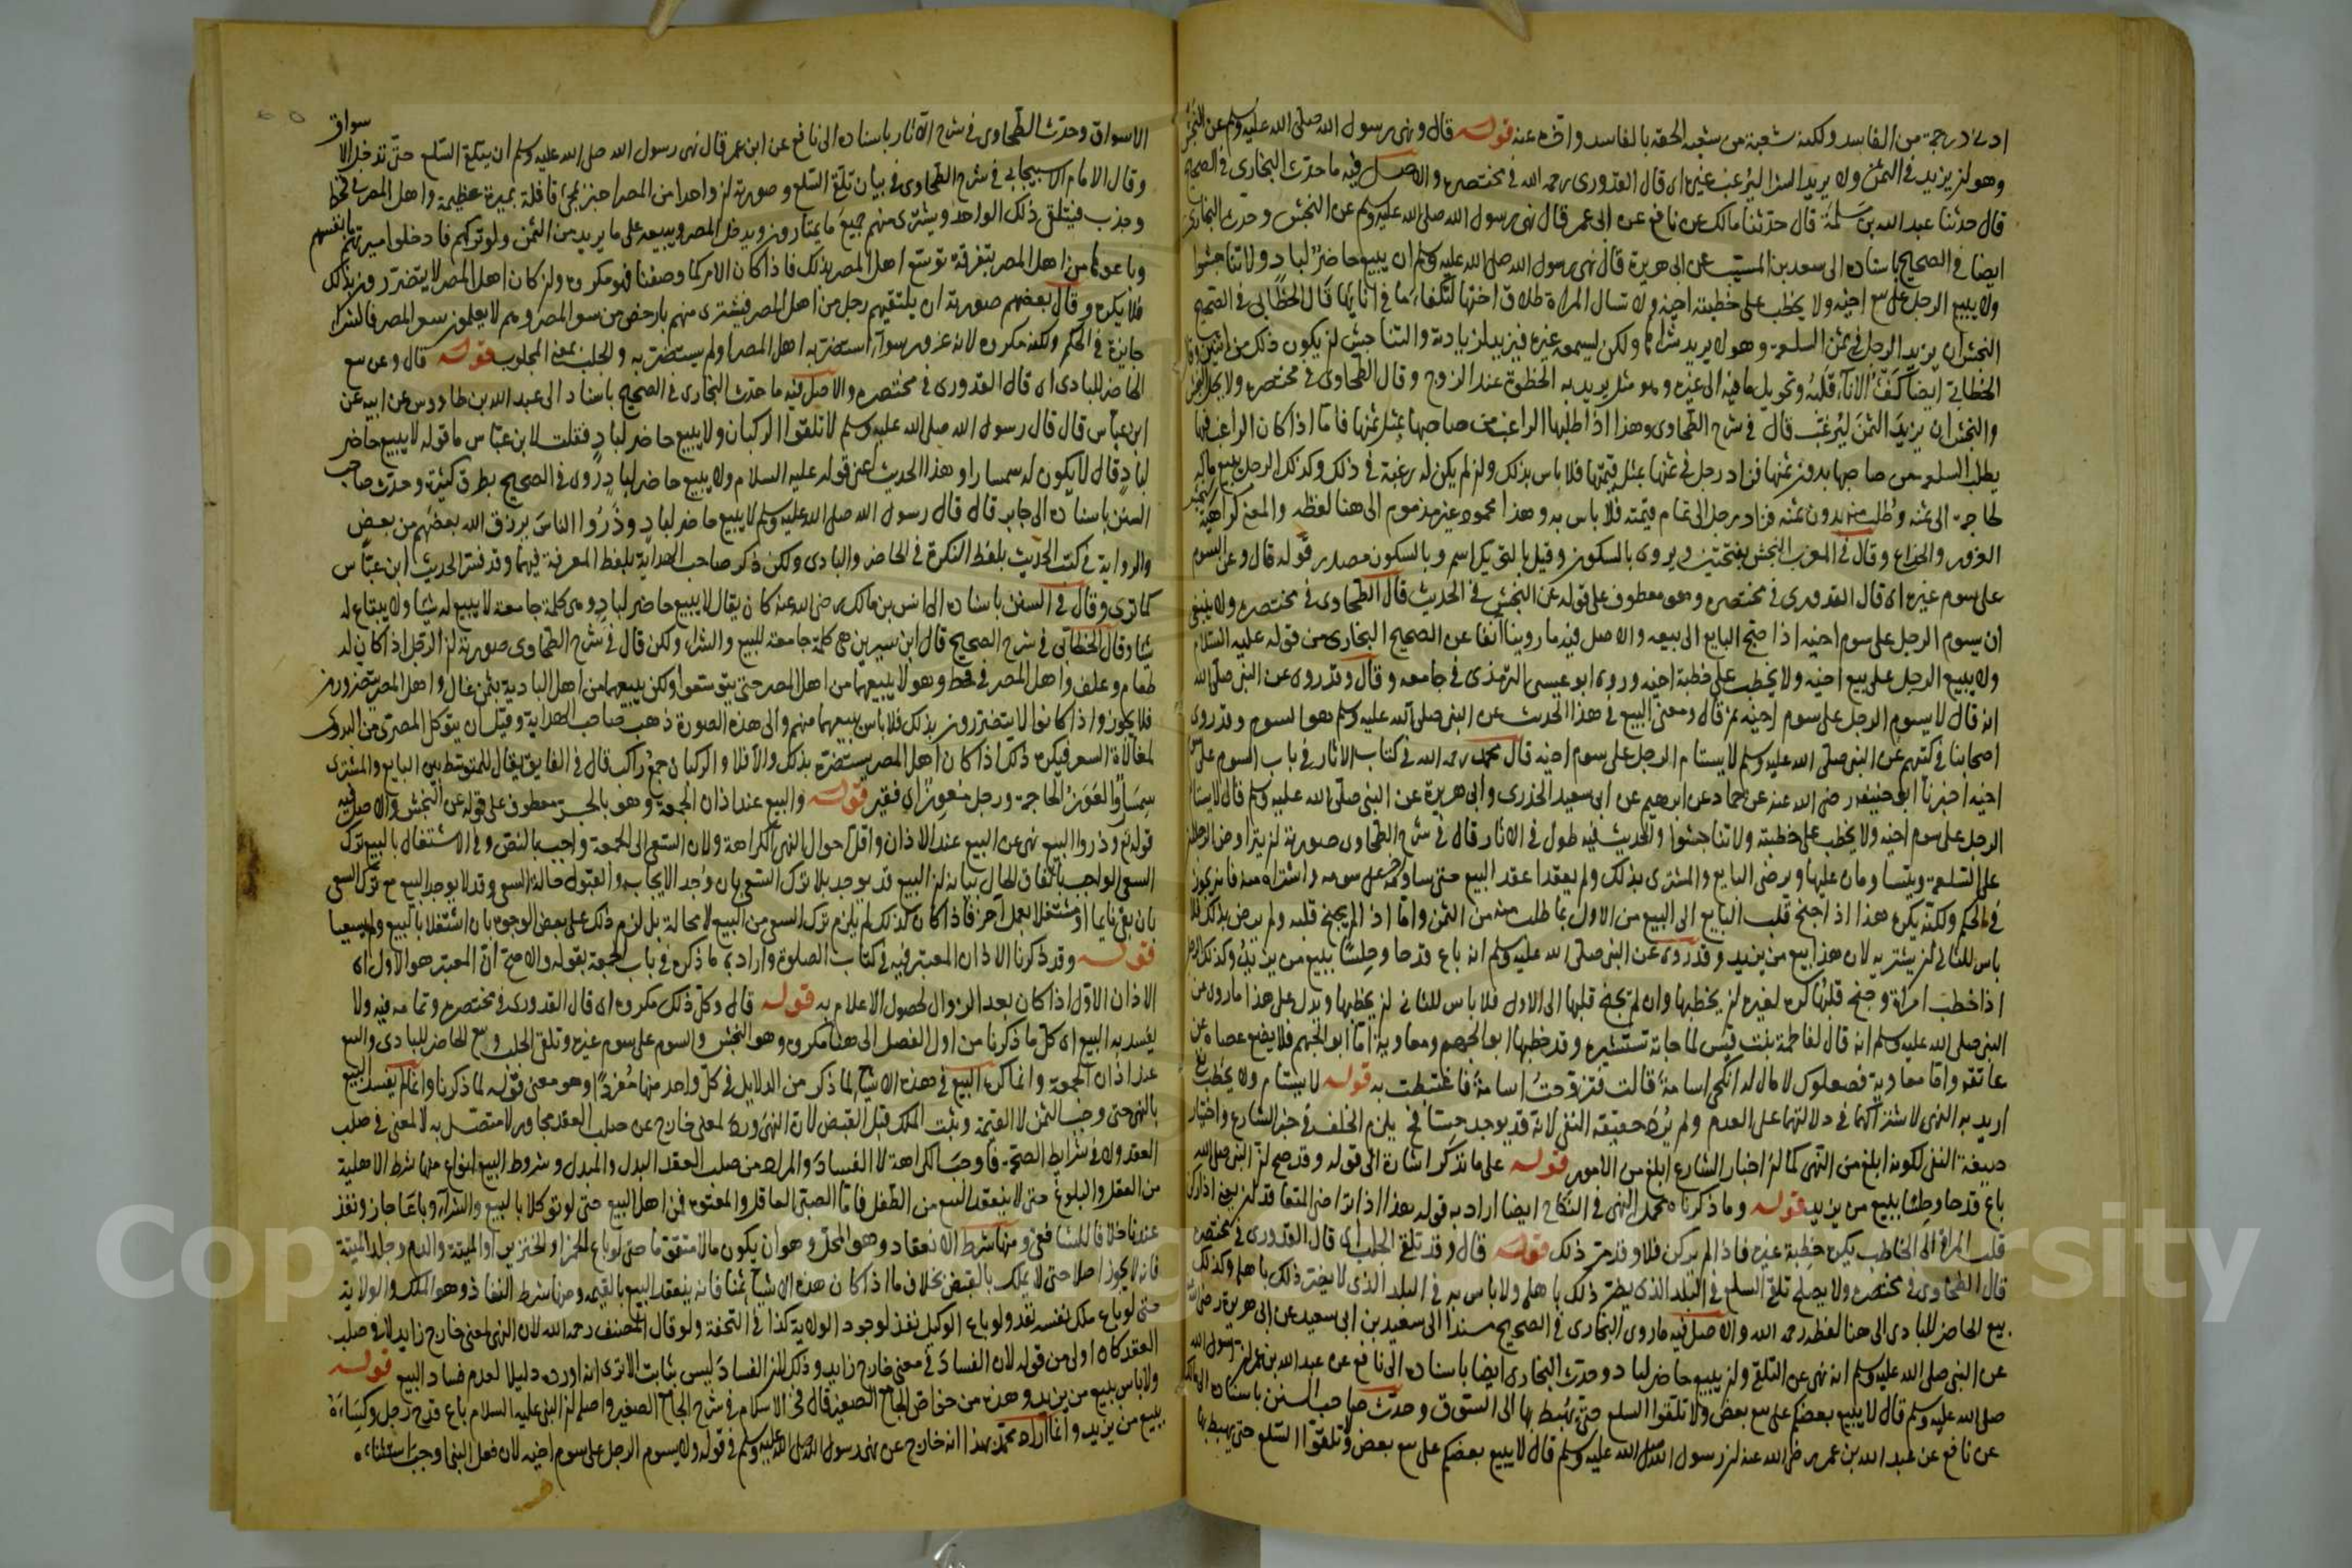 ادنى درجة من الفاسد ولكنه شعبة من شعبه الحقه بالفاسد واخره عنه قوله قال ونهى رسول الله صلى الله عليه وسلم عن النجش
وهو ان يزيد في الثمن ولا يريد الشرا ليرغب غيره اى قال القدورى رحمه الله في مختصره والاصل فيه ما حدث البخارى في الصحيح
قال حدثنا عبد الله بن مسلمة قال حدثنا مالك عن نافع عن ابن عمر قال نهى رسول الله صلى الله عليه وسلم عن النجش وحدث البخارى
ايضا في الصحيح باسناده الى سعيد بن المسيب عن ابى هريرة قال نهى رسول الله صلى الله عليه وسلم ان يبيع حاضر لباد ولا تناجشوا
ولا يبيع الرجل على بيع اخيه ولا يخطب على خطبة اخيه ولا تسال المراة طلاق اختها لتكفا ما في انائها قال الخطابى في الصحيح
النجش ان يزيد الرجل في ثمن السلعة وهو لا يريد شراها ولكن ليسمعه غيره فيزيد لزيادته والتناجش ان يكون ذلك من اثنين وقال
الخطابى ايضا كفت الاناء قلبه وتحويل ما فيه الى غيره وهو مثل يريد به الحظوة عند الزوج وقال الطحاوى في مختصره ولا يحل النجش
والنجش ان يزيد الثمن ليرغب قال في شرح الطحاوى وهذا اذا طلبها الراغب من صاحبها بمثل ثمنها فاما اذا كان الراغب فيها
يطلب السلعة من صاحبها بدون ثمنها فزاد رجل في ثمنها بمثل قيمتها فلا باس بذلك وان لم يكن له رغبة في ذلك وكذلك الرجل يبيع ماله
لحاجة الى ثمنه وطلب منه بدون ثمنه فزاد رجل الى تمام قيمته فلا باس به وهذا محمود غير مذموم الى هنا لفظه والمعنى كراهية
الغرور والخداع وقال في المغرب النجش بفتحتين ويروى بالسكون وقيل بالتحريك اسم وبالسكون مصدر قوله قال وعن السوم
على سوم غيره اى قال القدورى في مختصره وهو معطوف على قوله عن النجش في الحديث قال الطحاوى في مختصره ولا ينبغي
ان يسوم الرجل على سوم اخيه اذا جنح البايع الى بيعه والاصل فيه ما روينا انفا عن الصحيح البخارى من قوله عليه السلام
ولا يبيع الرجل على بيع اخيه ولا يخطب على خطبة اخيه وروى ابو عيسى الترمذى في جامعه وقال وقد روى عن النبى صلى الله
انه قال لا يسوم الرجل على سوم اخيه ثم قال ومعنى البيع في هذا الحديث عن النبى صلى الله عليه وسلم هو السوم وقد روى
اصحابنا في كتبهم عن النبى صلى الله عليه وسلم لا يستام الرجل على سوم اخيه قال محمد رحمه الله في كتاب الاثار في باب السوم على سوم
اخيه اخبرنا ابو حنيفه رضى الله عنه عن حماد عن ابرهيم عن ابى سعيد الخدرى وابى هريرة عن النبى صلى الله عليه وسلم قال لا يستام
الرجل على سوم اخيه ولا يخطب على خطبته ولا تناجشوا والحديث فيه طول في الاثار قال في شرح الطحاوى صورته ان يتراوضا الرجلان
على السلعة ويتساومان عليها ويرضى البايع والمشترى بذلك ولم يعقدا عقد البيع حتى ساومه اخر على سومه واشتراه منه فانه يجوز
في الحكم ولكنه يكره هذا اذا جنح قلب البايع الى البيع من الاول بما طلب منه من الثمن واما اذا لم يجنح قلبه ولم يرض بذلك فلا
باس للثانى ان يشتريه لان هذا بيع من يزيد وقد روى عن النبى صلى الله عليه وسلم انه باع قدحا وحلسا ببيع من يزيد وكذلك الرجل
اذا خطب امراة وجنح قلبها كره لغيره ان يخطبها وان لم يجنح قلبها الى الاول فلا باس للثانى ان يخطبها ويدل على هذا ما روى عن
النبى صلى الله عليه وسلم انه قال لفاطمة بنت قيس لما جاءته تستشيره وقد خطبها ابو الجهم ومعاوية اما ابو الجهم فلا يضع عصاه عن
عاتقه واما معاوية فصعلوك لا مال له انكحى اسامة قالت فتزوجت اسامة فاغتبطت به قوله لا يستام ولا يخطب
اريد به النهى لاشتراكهما في دلالتهما على العدم ولم يرد حقيقة النفى لانه قد يوجد حسا فح يلزم الخلف في خبر الشارع واختيار
صيغة النفى لكونه ابلغ من النهى كما ان اخبار الشارع ابلغ من الامور قوله على ما نذكر اشارة الى قوله وقد صح ان النبى صلى الله
باع قدحا وحلسا ببيع من يزيد قوله وما ذكرناه محمل النهى في النكاح ايضا اراد به قوله بعد اذا تراضى المتعاقدان يعنى اذا ركن
قلب المراة الى الخاطب يكره خطبة غيره فاذا لم يركن فلا وقد مر ذلك قوله قال وقد تلقى الجلب اى قال القدورى في مختصره
قال الطحاوى في مختصره ولا يصلح تلقى السلع في البلد الذى يضر ذلك باهله ولا باس به في البلد الذى لا يضر ذلك باهله وكذلك
بيع الحاضر للبادى الى هنا لفظه رحمه الله والاصل فيه ما روى البخارى في الصحيح مسندا الى سعيد بن ابى سعيد عن ابى هريرة رضى الله
عن النبى صلى الله عليه وسلم انه نهى عن التلقى وان يبيع حاضر لباد وحدث البخارى ايضا باسناده الى نافع عن عبد الله بن عمر ان رسول الله
صلى الله عليه وسلم قال لا يبيع بعضكم على بيع بعض ولا تلقوا السلع حتى يهبط بها الى السوق وحدث صاحب السنن باسناده الى مالك
عن نافع عن عبد الله بن عمر رضى الله عنه ان رسول الله صلى الله عليه وسلم قال لا يبيع بعضكم على بيع بعض ولا تلقوا السلع حتى يهبط بها
سواق
الاسواق وحدث الطحاوى في شرح الاثار باسناده الى نافع عن ابن عمر قال نهى رسول الله صلى الله عليه وسلم ان يتلقى السلع حتى تدخل الا
وقال الامام الاسبيجابى في شرح الطحاوى في بيان تلقى السلع وصورته ان واحدا من المصر اخبر بمجئ قافلة بميرة عظيمة واهل المصر في قحط
وجدب فيتلقى ذلك الواحد ويشترى منهم جميع ما يمتارون ويدخل المصر ويبيعه على ما يريد من الثمن ولو تركهم فادخلوا ميرتهم بانفسهم
وباعوها من اهل المصر بتفرقة توسع اهل المصر بذلك فاذا كان الامر كما وصفنا فهو مكروه وان كان اهل المصر لا يتضررون بذلك
فلا يكره وقال بعضهم صورته ان يلتقيهم رجل من اهل المصر فيشترى منهم بارخص من سعر المصر وهم لا يعلمون سعر المصر فالشرا
جايزة في الحكم ولكنه مكروه لانه غرور سواء استضر به اهل المصر او لم يستضر به والجلب بمعنى المجلوب قوله قال وعن بيع
الحاضر للبادى اى قال القدورى في مختصره والاصل فيه ما حدث البخارى في الصحيح باسناد الى عبد الله بن طاووس عن ابيه عن
ابن عباس قال قال رسول الله صلى الله عليه وسلم لا تلقوا الركبان ولا يبيع حاضر لباد فقلت لابن عباس ما قوله لا يبيع حاضر
لباد قال لا يكون له سمسارا وهذا الحديث اعنى قوله عليه السلام ولا يبيع حاضر لباد روى في الصحيح بطرق كثيرة وحدث صاحب
السنن باسناده الى جابر قال قال رسول الله صلى الله عليه وسلم لا يبيع حاضر لباد وذروا الناس يرزق الله بعضهم من بعض
والرواية في كتب الحديث بلفظ النكرة في الحاضر والبادى ولكن ذكر صاحب الهداية بلفظ المعرفة فيهما وقد فسر الحديث ابن عباس
كما ترى وقال في السنن باسناده الى انس بن مالك رضى الله عنه كان يقال لا يبيع حاضر لباد وهى كلمة جامعة لا يبيع له شيا ولا يبتاع له
شيا وقال الخطابى في شرح الصحيح قال ابن سيرين هى كلمة جامعة للبيع والشراء ولكن قال في شرح الطحاوى صورته ان الرجل اذا كان له
طعام وعلف واهل المصر في قحط وهو لا يبيعهما من اهل المصر حتى يتوسعوا ولكن يبيعهما من اهل البادية بثمن غال واهل المصر يتضررون
فلا يجوز واذا كانوا لا يتضررون بذلك فلا باس ببيعهما منهم والى هذه الصورة ذهب صاحب الهداية وقيل ان يتوكل المصرى من البدوى
لمغالاة السعر فيكره ذلك اذا كان اهل المصر يستضره بذلك والا فلا والركبان جمع راكب قال في الفايق يقال للمتوسط بين البايع والمشترى
سمسار والعوز الحاجة ورجل معوز اى فقير قوله والبيع عند اذان الجمعة وهو بالجر معطوف على قوله عن النجش والاصل فيه
قوله تع وذروا البيع نهى عن البيع عند الاذان واقل احوال النهى الكراهة ولان السعى الى الجمعة واجب بالنص وفي الاشتغال بالبيع ترك
السعى الواجب باتفاق الحال بيانه ان البيع قد يوجد بلا ترك السعى بان وجد الايجاب والقبول حالة السعى وقد لا يوجد البيع مع ترك السعى
بان بقى نايما او مشتغلا بعمل اخر فاذا كان كذلك لم يلزم ترك السعى من البيع لا محالة بل لزم ذلك على بعض الوجوه بان اشتغلا بالبيع ولم يسعيا
قوله وقد ذكرنا الاذان المعتبر فيه في كتاب الصلوة واراد به ما ذكره في باب الجمعة بقوله والاصح ان المعتبر هو الاول اى
الاذان الاول اذا كان بعد الزوال لحصول الاعلام به قوله قال وكل ذلك مكروه اى قال القدورى في مختصره وتمامه فيه ولا
يفسد به البيع اى كل ما ذكرنا من اول الفصل الى هنا مكروه وهو النجش والسوم على سوم غيره وتلقى الجلب وبيع الحاضر للبادى والبيع
عند اذان الجمعة وانما كره البيع في هذه الاشيا لما ذكر من الدلايل في كل واحد منها مفردا وهو معنى قوله لما ذكرنا وانما لم يفسد البيع
بالنهى حتى وجب الثمن لا القيمة ويثبت الملك قبل القبض لان النهى ورد لمعنى خارج عن صلب العقد مجاور لا متصل به لا لمعنى في صلب
العقد ولا في شرايط الصحة فاوجب الكراهة لا الفساد والمراد من صلب العقد البدل والمبدل وشروط البيع انواع منها شرط الاهلية
من العقل والبلوغ حتى لا ينعقد البيع من الطفل فاما الصبى العاقل والمعتوه فمن اهل البيع حتى لو توكلا بالبيع والشراء وباعا جاز ونفذ
عندنا خلافا للشافعى ومنها شرط الانعقاد وهو المحل وهو ان يكون مالا متقوما حتى لو باع الخمر او الخنزير او الميتة والدم وجلد الميتة
فانه لا يجوز اصلا حتى لا يملك بالقبض بخلاف ما اذا كان هذه الاشيا ثمنا فانه ينعقد البيع بالقيمة ومنها شرط النفاذ وهو الملك والولاية
حتى لو باع ملك نفسه نفذ ولو باع الوكيل نفذ لوجود الولاية كذا في التحفة ولو قال المصنف رحمه الله لان النهى لمعنى خارج زايد لا في صلب
العقد كان اولى من قوله لان الفساد في معنى خارج زايد وذلك لان الفساد ليس بثابت الا ترى انه اورده دليلا لعدم فساد البيع قوله
ولا باس ببيع من يزيد وهذه من خواص الجامع الصغير قال فخر الاسلام في شرح الجامع الصغير واصله ان النبى عليه السلام باع قدح رجل وكساءه
ببيع من يزيد وانما اراد محمد بهذا انه خارج عن نهى رسول الله صلى الله عليه وسلم في قوله ولا يسوم الرجل على سوم اخيه لان فعل النبى اوجب استثناءه